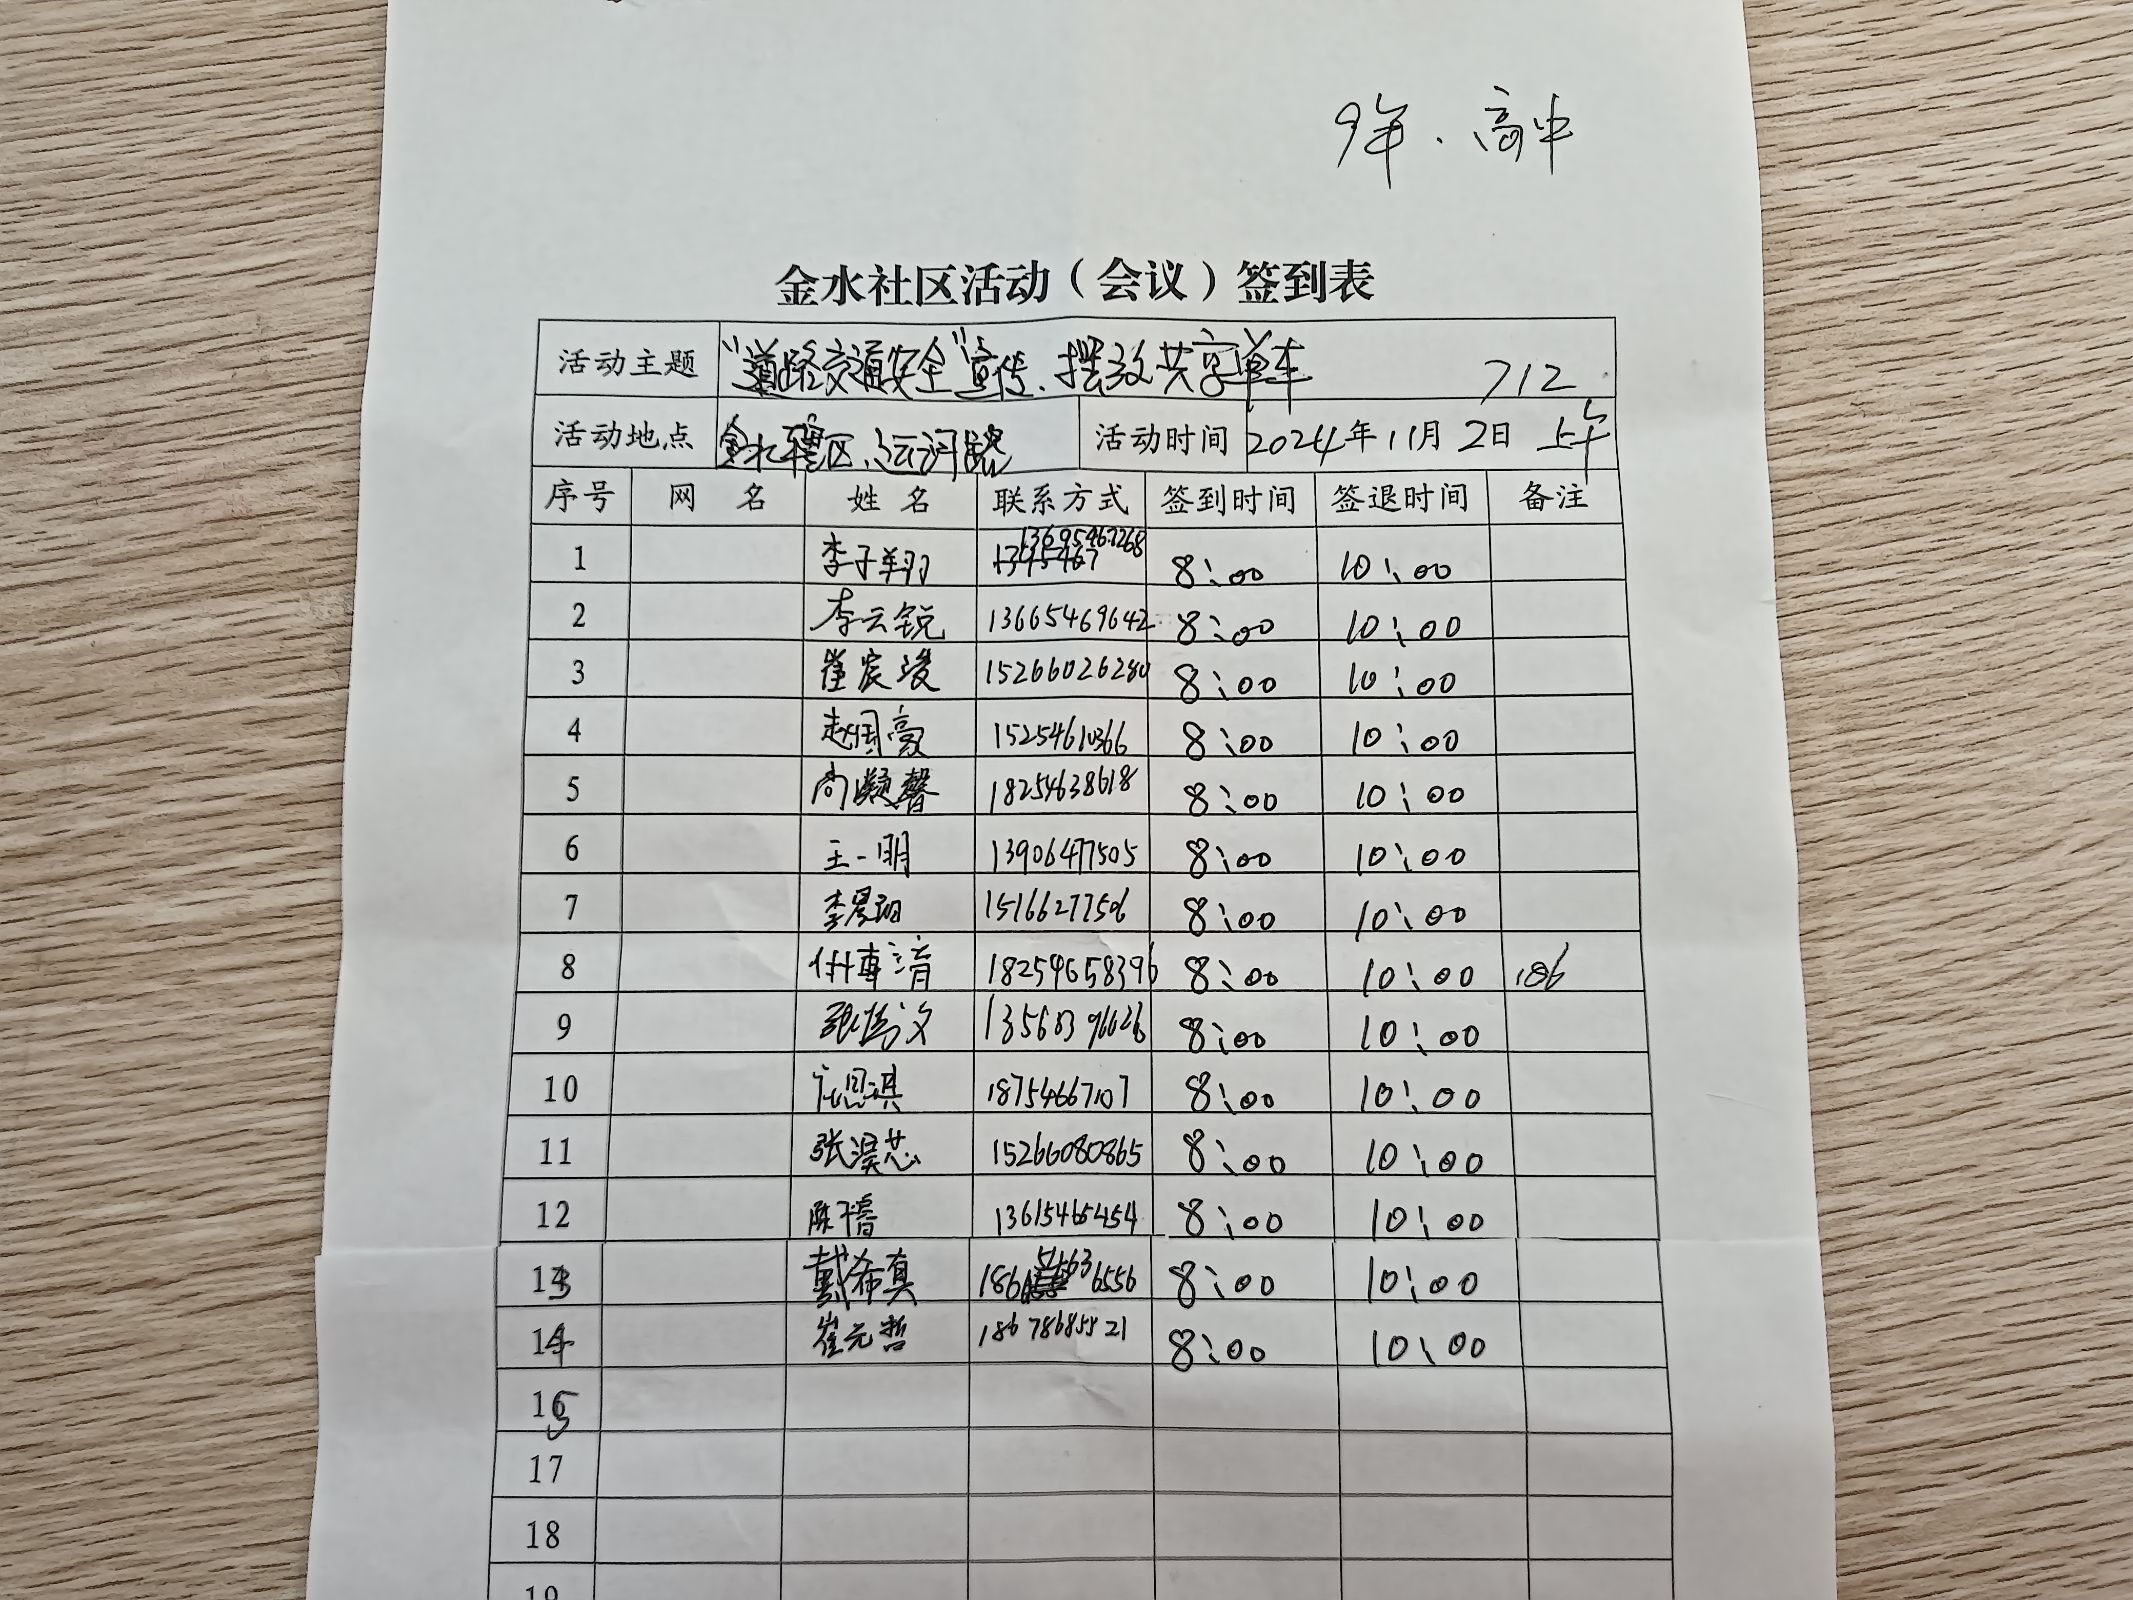 9年.高中
金水社区活动（会议）签到表
活动主题 "道路交通安全"宣传、摆放共享单车 712
活动地点 金水辖区、运河路 活动时间 2024年11月2日 上午
序号 网 名 姓 名 联系方式 签到时间 签退时间 备注
1 李子翔 13695467268 8:00 10:00
2 李云锐 13665469642 8:00 10:00
3 崔宸浚 15266026280 8:00 10:00
4 赵国豪 15254610366 8:00 10:00
5 尚凝馨 18254638618 8:00 10:00
6 王一明 13906477505 8:00 10:00
7 李 15166277506 8:00 10:00
8 18254658396 8:00 10:00 186
9 张 文 8:00 10:00
10 18754667107 8:00 10:00
11 张淏芯 15266080865 8:00 10:00
12 陈 13615465454 8:00 10:00
13 戴希真 6556 8:00 10:00
14 崔元哲 18678685521 8:00 10:00
15
17
18
19